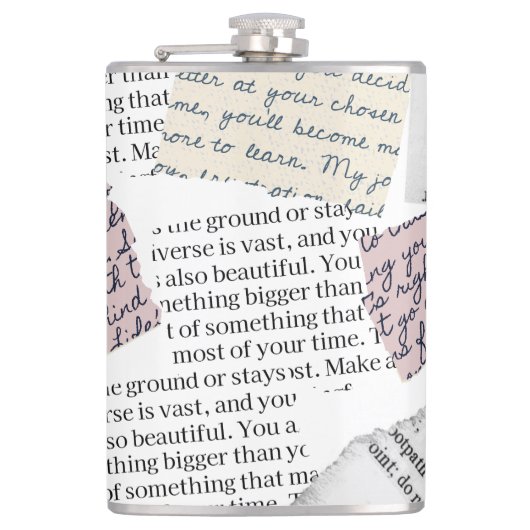 er than
ng that
r time
st. Ma
decid
at your chosen
me, you'll become
more to learn. My jo
the ground or stays
iverse is vast, and you
also beautiful. You
mething bigger than
t of something that
most of your time. T
e ground or staysost. Make a
rse is vast, and you
so beautiful. You a
thing bigger than yo
of something that ma
ur time.
ng you
s righ
t go
ind
life
ootpath
oint; do